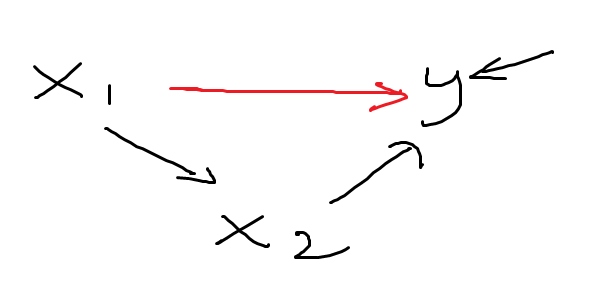 x₁ y
x₂